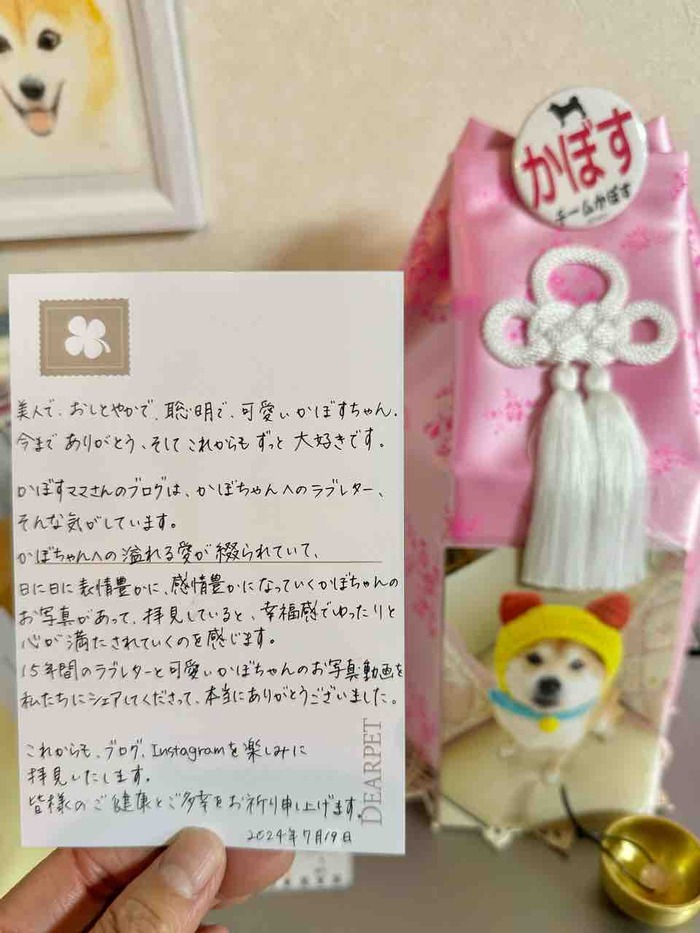 かぼす
チームかぼす
美人で、おしとやかで、聡明で、可愛いかぼすちゃん。
今までありがとう、そしてこれからもずっと大好きです。
かぼすママさんのブログは、かぼちゃんへのラブレター、
そんな気がしています。
かぼちゃんへの溢れる愛が綴られていて、
日に日に表情豊かに、感情豊かになっていくかぼちゃんの
お写真があって、拝見していると、幸福感でゆったりと
心が満たされていくのを感じます。
15年間のラブレターと可愛いかぼちゃんのお写真・動画を
私たちにシェアしてくださって、本当にありがとうございました。
これからも、ブログ、Instagramを楽しみに
拝見いたします。
皆様のご健康とご多幸をお祈り申し上げます。
2024年7月19日
DEARPET